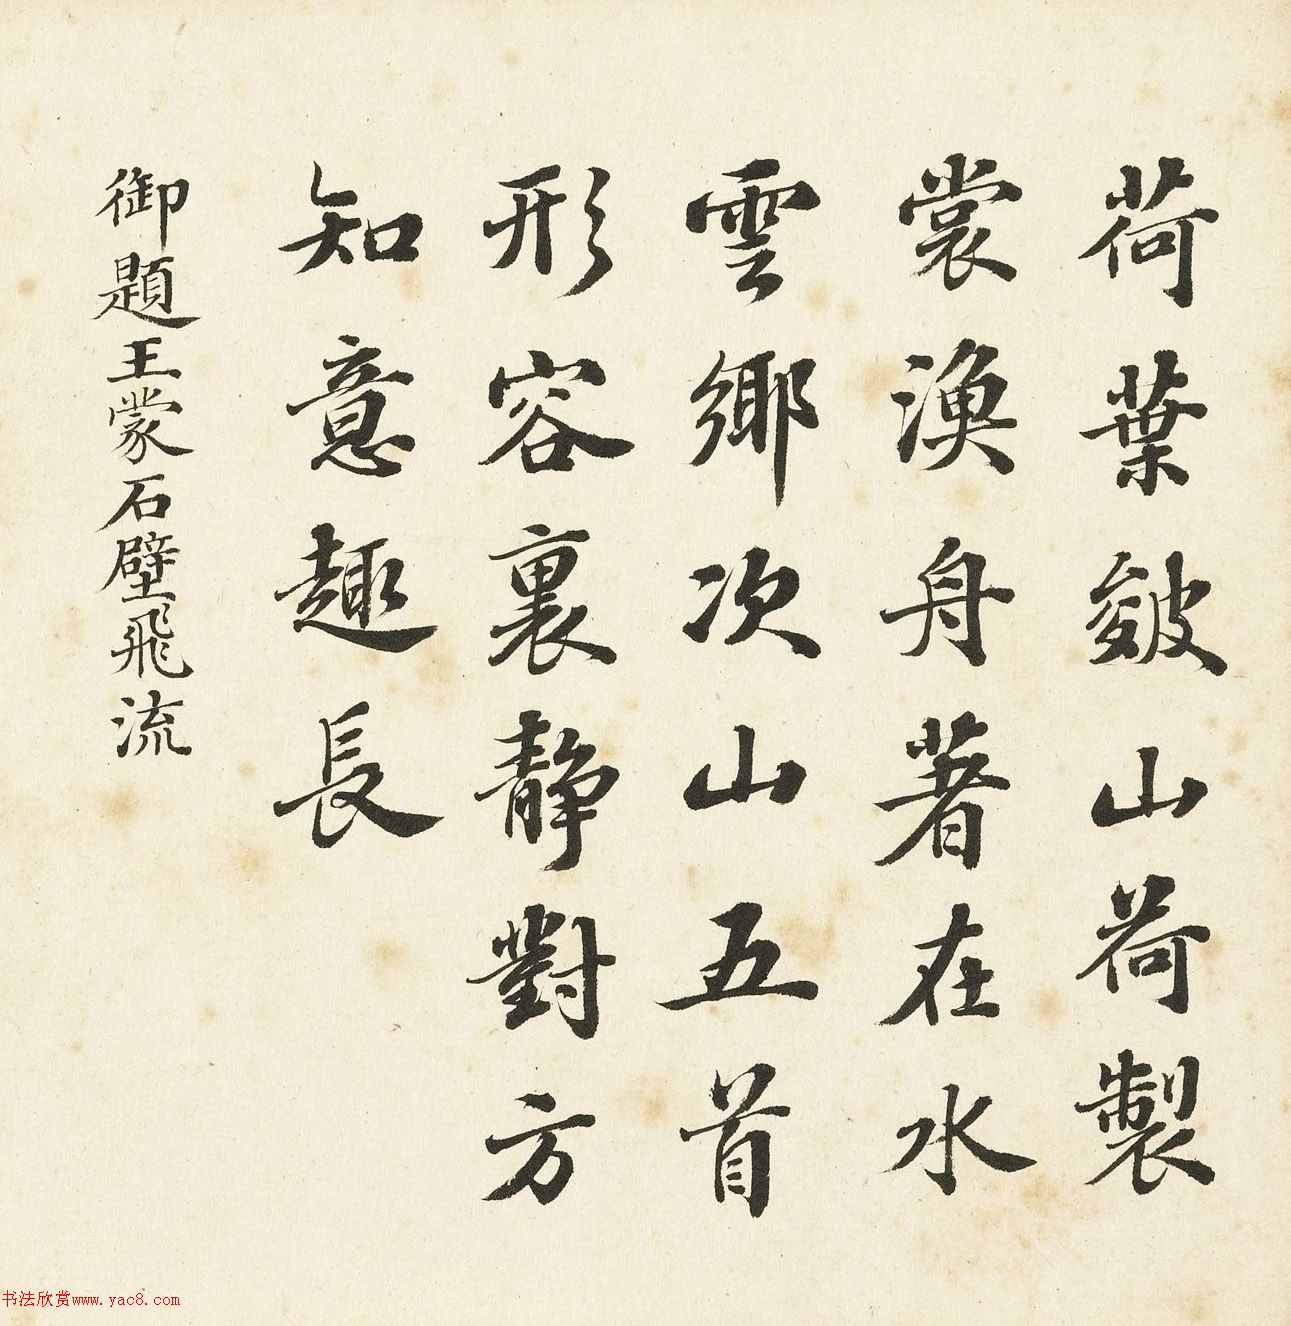 荷葉皴山荷製
裳漁舟著在水
雲鄉次山五首
形容裏靜對方
知意趣長
御題王蒙石壁飛流
书法欣赏www.yac8.com